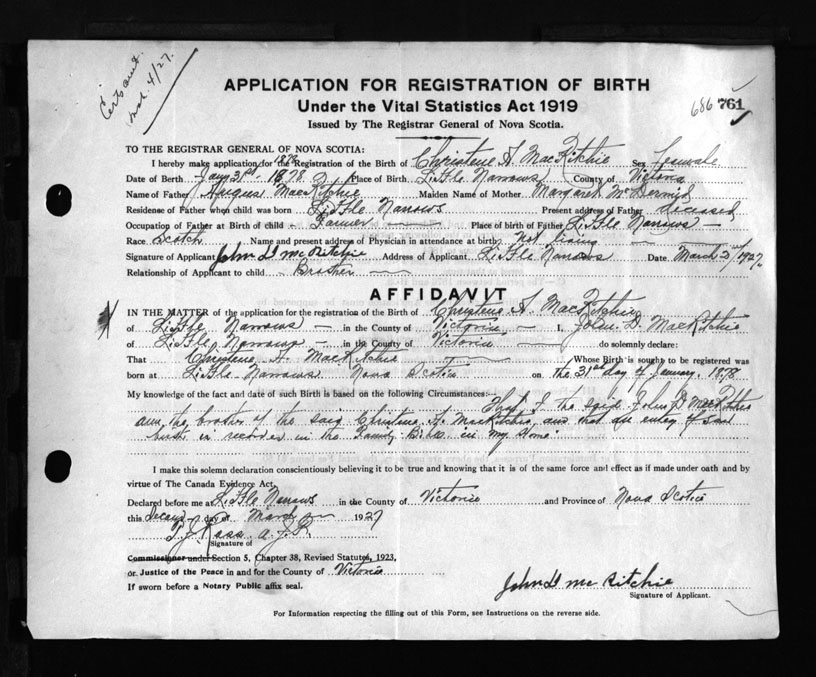 Cert sent.
Mch. 4/27.
APPLICATION FOR REGISTRATION OF BIRTH
Under the Vital Statistics Act 1919
Issued by The Registrar General of Nova Scotia.
686 761
TO THE REGISTRAR GENERAL OF NOVA SCOTIA:
I hereby make application for the 1878 Registration of the Birth of Christene A. MacRitchie Sex Female
Date of Birth Jany 31st - 1878 Place of Birth Little Narrows County of Victoria
Name of Father Angus MacRitchie Maiden Name of Mother Margaret McDermid
Residence of Father when child was born Little Narrows Present address of Father deceased
Occupation of Father at Birth of child - Farmer Place of birth of Father Little Narrows -
Race Scotch Name and present address of Physician in attendance at birth Not living
Signature of Applicant John D McRitchie Address of Applicant Little Narrows Date March 2nd 1927
Relationship of Applicant to child - Brother
AFFIDAVIT
IN THE MATTER of the application for the registration of the Birth of Christene A. MacRitchie
of Little Narrows - in the County of Victoria - I, John D. MacRitchie
of Little Narrows - in the County of Victoria - do solemnly declare:
That Christene A. MacRitchie Whose Birth is sought to be registered was
born at Little Narrows Nova Scotia on the 31st day of January. 1878
My knowledge of the fact and date of such Birth is based on the following Circumstances:— That I the said John D MacRitchie
am the brother of the said Christene A. MacRitchie, and that an entry of said
birth is recorded in the Family Bible in my home.
I make this solemn declaration conscientiously believing it to be true and knowing that it is of the same force and effect as if made under oath and by
virtue of The Canada Evidence Act.
Declared before me at Little Narrows in the County of Victoria and Province of Nova Scotia
this Second day of March 1927
T. J. Ross a J.P.
Signature of
Commissioner under Section 5, Chapter 38, Revised Statutes, 1923,
or Justice of the Peace in and for the County of Victoria
If sworn before a Notary Public affix seal.
John D McRitchie
Signature of Applicant.
For Information respecting the filling out of this Form, see Instructions on the reverse side.